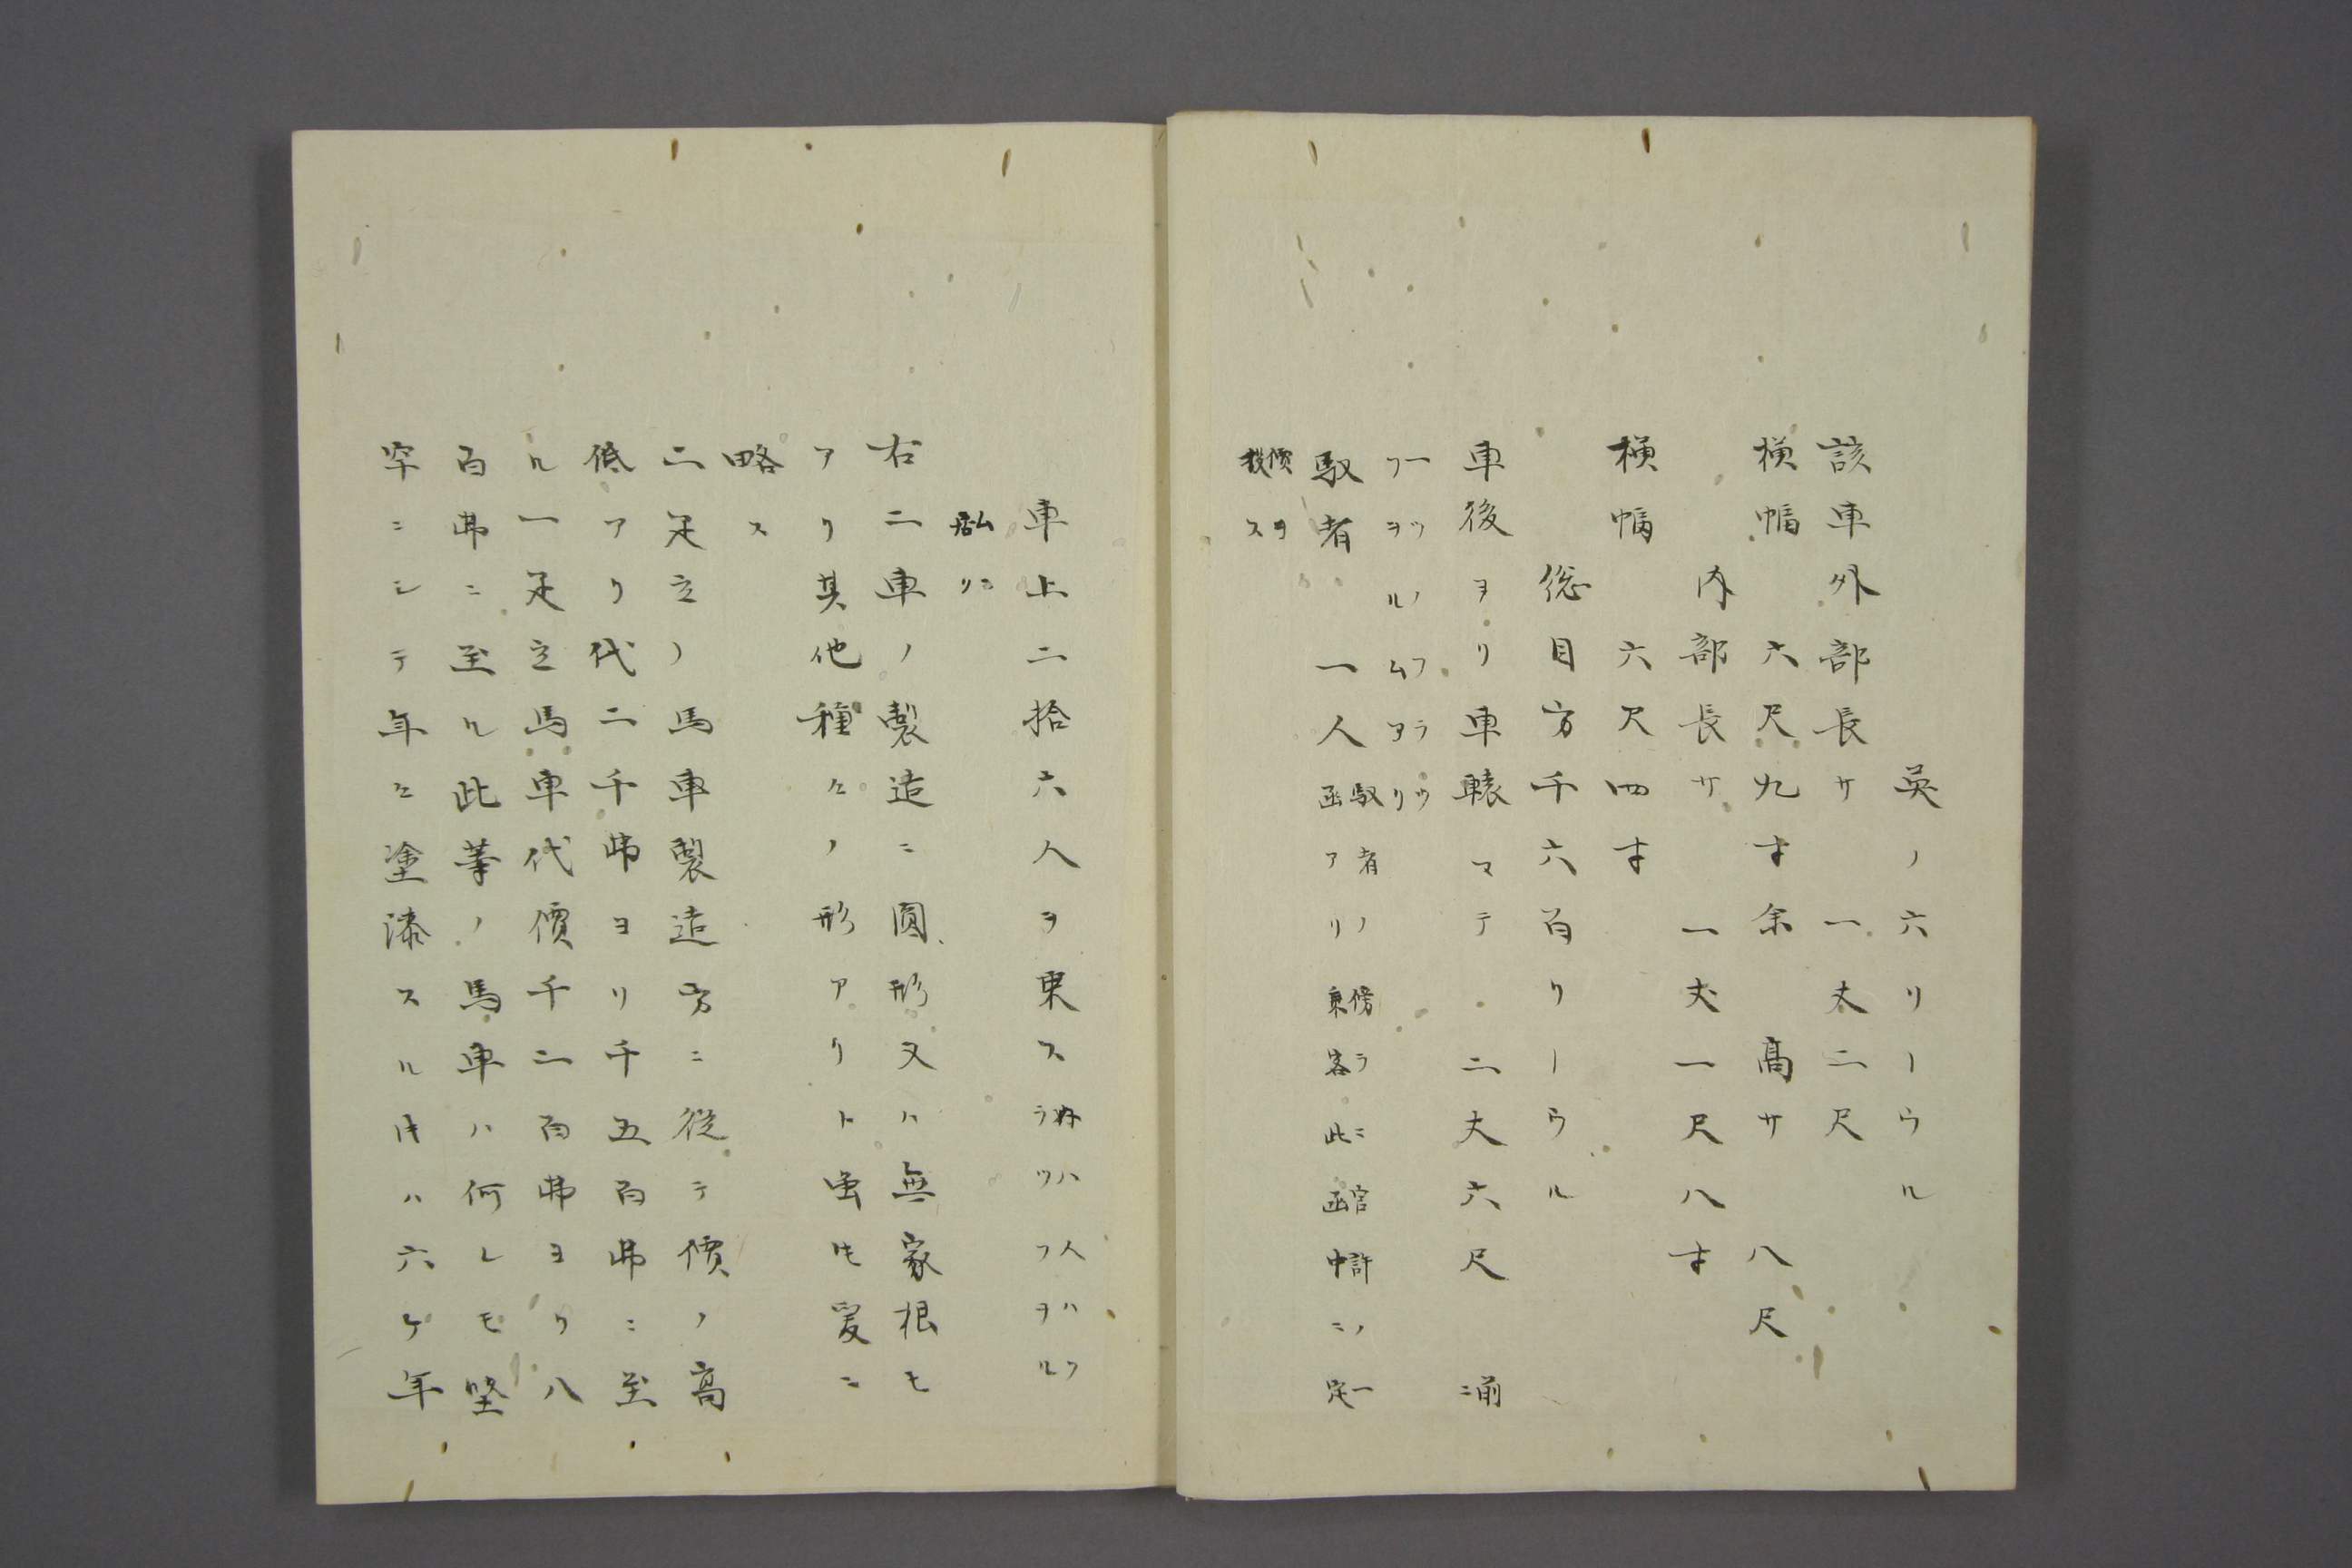 英ノ六リーウル
該車外部長サ 一丈二尺
横幅 六尺九寸余 高サ 八尺
内部長サ 一丈一尺八寸
横幅 六尺四寸
総目方千六百リーウル
車後ヨリ車轅マテ 二丈六尺 前ニ
一ツノフラツ
フヲルムアリ
馭者 一人 馭者ノ傍ラニ官許ノ一
函アリ乗客此函中ニ定
價ヲ
投ス
車上二拾六人ヲ乗ス 外八人ハフ
ラツフヲル
ムニ
居リ
右二車ノ製造ニ圓形又ハ無家根モ
アリ其他種々ノ形アリト雖𪜈爰ニ
略ス
二疋立ノ馬車製造方ニ従テ價ノ高
低アリ代二千弗ヨリ千五百弗ニ至
ル一疋立馬車代價千二百弗ヨリ八
百弗ニ至ル此等ノ馬車ハ何レモ堅
牢ニシテ年々塗漆スル𪜈ハ六ケ年